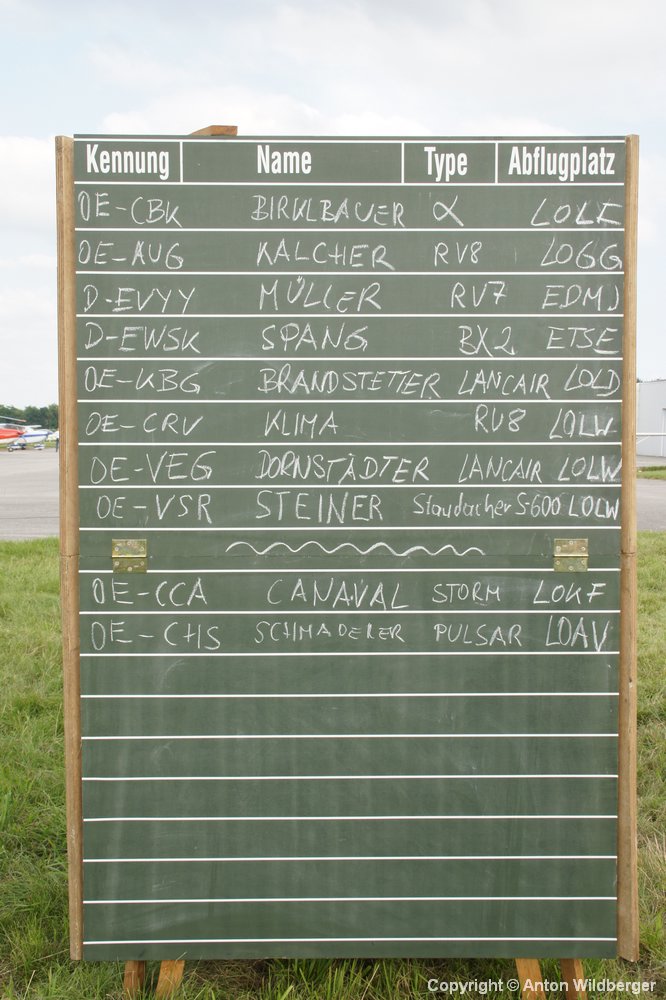 Kennung Name Type Abflugplatz
OE-CBK BIRKLBAUER α LOLE
OE-AUG KALCHER RV8 LOGG
D-EVYY MÜLLER RV7 EDMJ
D-EWSK SPANG BX2 ETSE
OE-KBG BRANDSTETTER LANCAIR LOLD
OE-CRV KLIMA RV8 LOLW
OE-VEG DORNSTÄDTER LANCAIR LOLW
OE-VSR STEINER Staudacher S-600 LOLW
OE-CCA CANAVAL STORM LOKF
OE-CHS SCHMADERER PULSAR LOAV
Copyright © Anton Wildberger